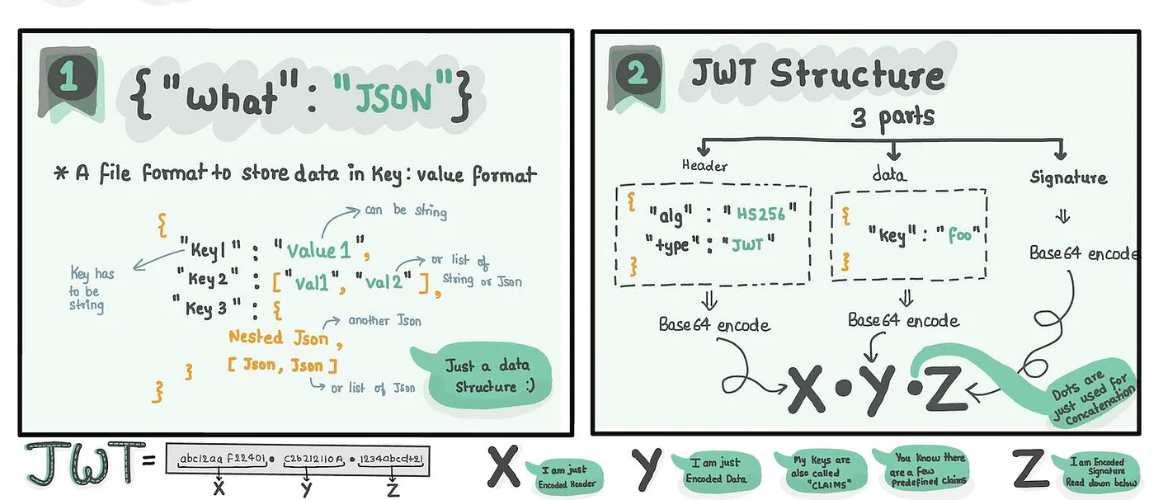 1
{ "What" : "JSON" }
* A file format to store data in Key : value format
{
"Key1" : "value1",
can be string
Key has
to be
string
"Key2" : ["val1", "val2"],
or list of
String or Json
"Key 3" : {
another Json
Nested Json,
[ Json, Json ]
or list of Json
}
}
Just a data
Structure :)
2
JWT Structure
3 parts
Header
data
Signature
{
"alg" : "HS256"
"type" : "JWT"
}
{
"key" : "foo"
}
Base64 encode
Base64 encode
Base64 encode
X.Y.Z
Dots are
just used for
Concatenation
JWT =
abc12aq f22401 . C2b212110A . 1234abcd+21
X
Y
Z
X
I am just
Encoded Header
Y
I am just
Encoded Data
My Keys are
also called
"CLAIMS"
You Know there
are a few
Predefined claims
Z
I am Encoded
Signature
Read down below